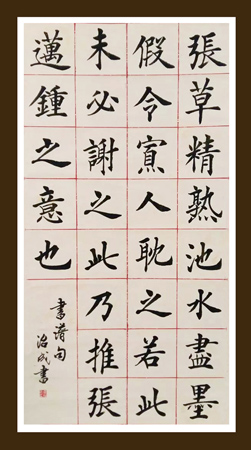 張草精熟池水盡墨
假令寡人耽之若此
未必謝之此乃推張
邁鍾之意也
書譜句
治成書